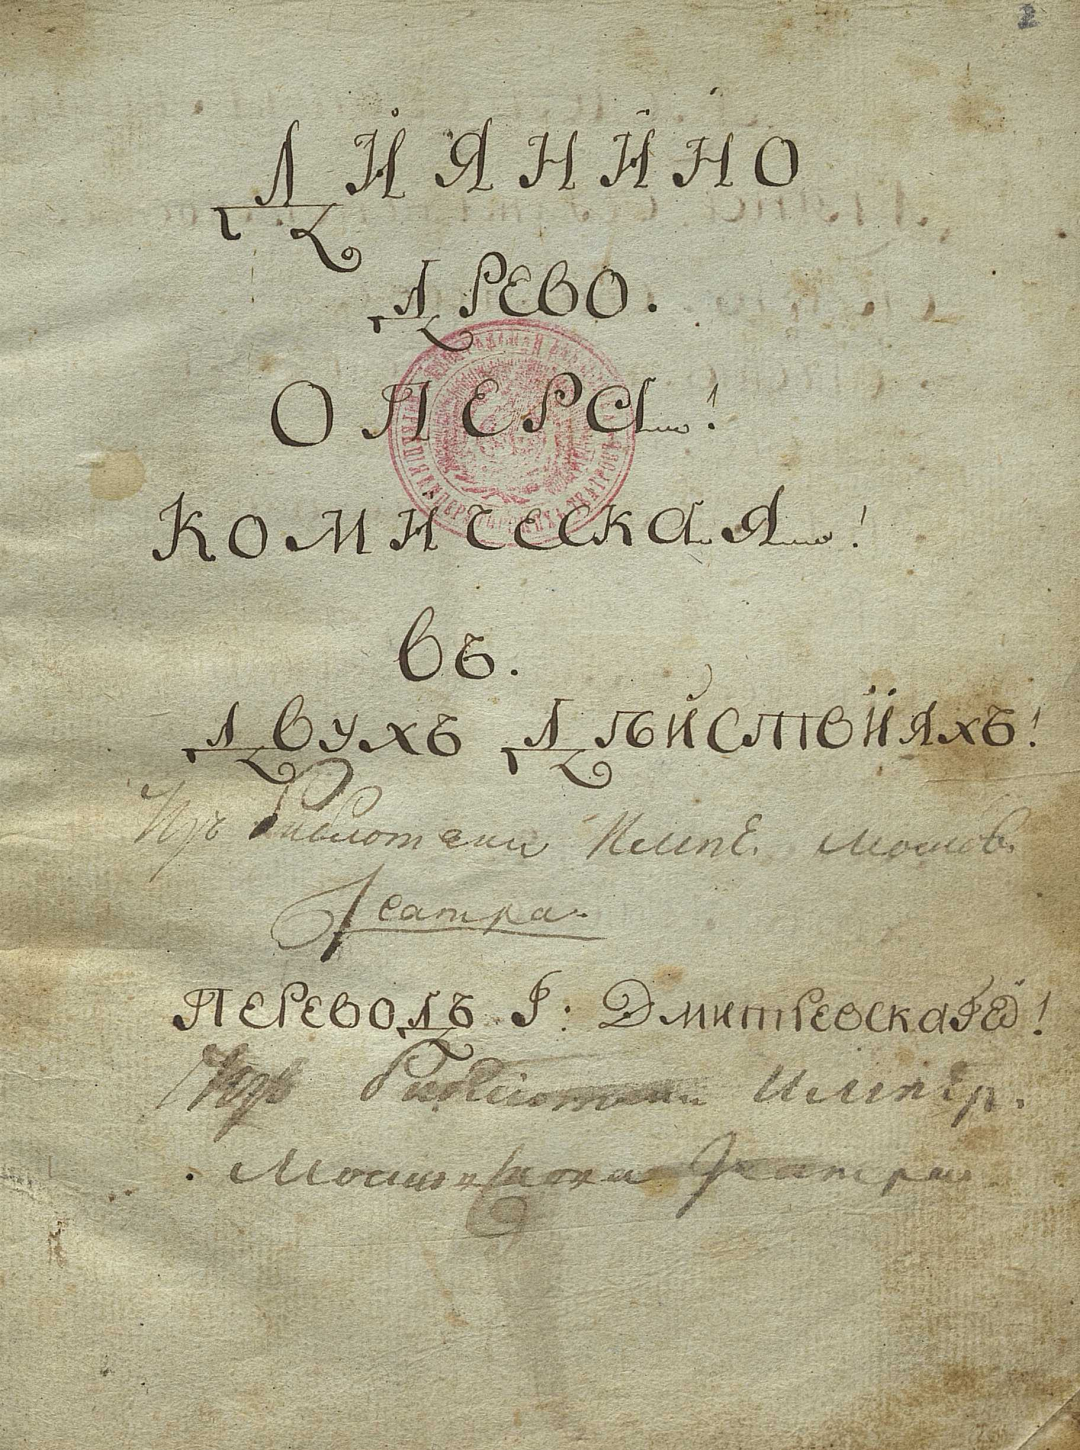 2
ДИЯНИНО
ДРЕВО.
ОПЕРА!
КОМИЧЕСКАЯ!
ВЪ.
ДВУХЪ ДѢЙСТВЇЯХЪ!
Изъ библиотеки Импе. Москов.
Театра.
ПЕРЕВОДЪ Г: ДМИТРЕВСКАГО!
Изъ библиотеки Импер.
Театра